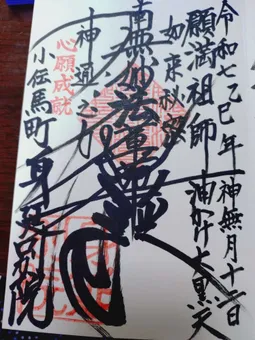 令和七乙巳年神無月十一日
願満祖師 油かけ大黒天
如来秘密
南無妙法蓮華経
神通之力
心願成就
小伝馬町 身延別院